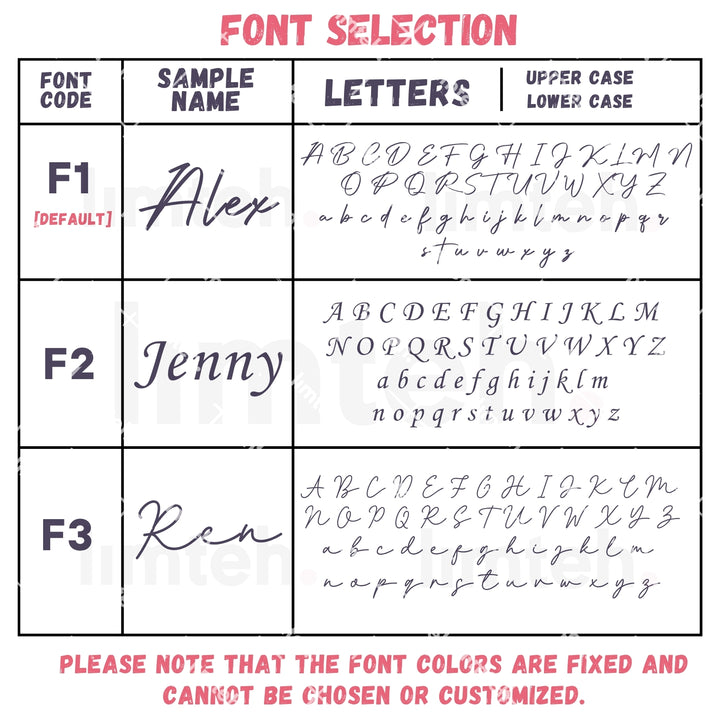 FONT SELECTION
FONT CODE
SAMPLE NAME
LETTERS
UPPER CASE
LOWER CASE
F1
[DEFAULT]
Alex
A B C D E F G H I J K L M N
O P Q R S T U V W X Y Z
a b c d e f g h i j k l m n o p q r
s t u v w x y z
F2
Jenny
A B C D E F G H I J K L M
N O P Q R S T U V W X Y Z
a b c d e f g h i j k l m
n o p q r s t u v w x y z
F3
Ren
A B C D E F G H I J K L M
N O P Q R S T U V W X Y Z
a b c d e f g h i j k l m
n o p q r s t u v w x y z
limteh.
PLEASE NOTE THAT THE FONT COLORS ARE FIXED AND
CANNOT BE CHOSEN OR CUSTOMIZED.